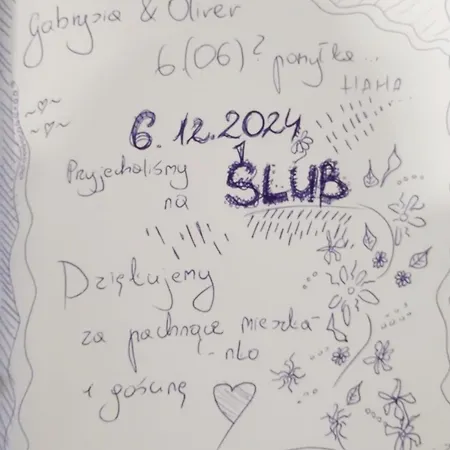 Gabrysia & Oliver
6 (06)? pomyłka...
HAHA
6.12.2024
Przyjechaliśmy
na
ŚLUB
Dziękujemy
za pachnące mieszka-
-nko
i gościnę